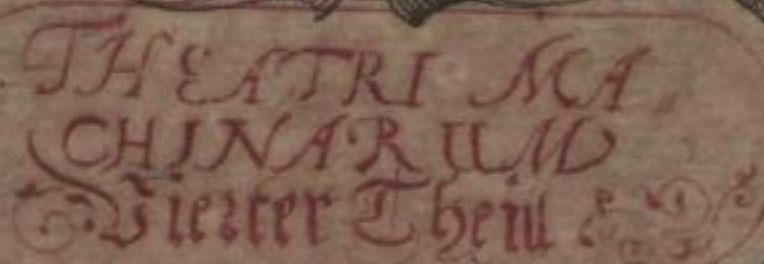 THEATRI MA„
CHINARUM
Vierter Theill